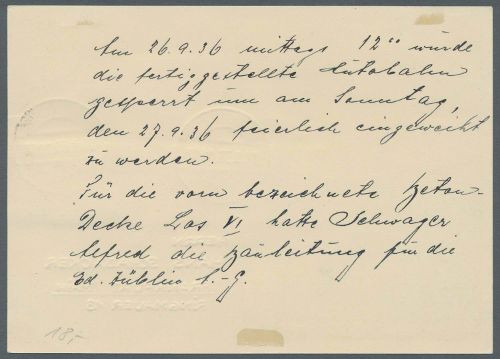 Am 26.9.36 mittags 12⁰⁰ wurde
die fertiggestellte Autobahn
gesperrt um am Sonntag,
den 27.9.36 feierlich eingeweiht
zu werden.
Für die vorn bezeichnete Beton-
Decke Los VI hatte Schwager
Alfred die Bauleitung für die
Ed. Züblin A.-G.
18,-